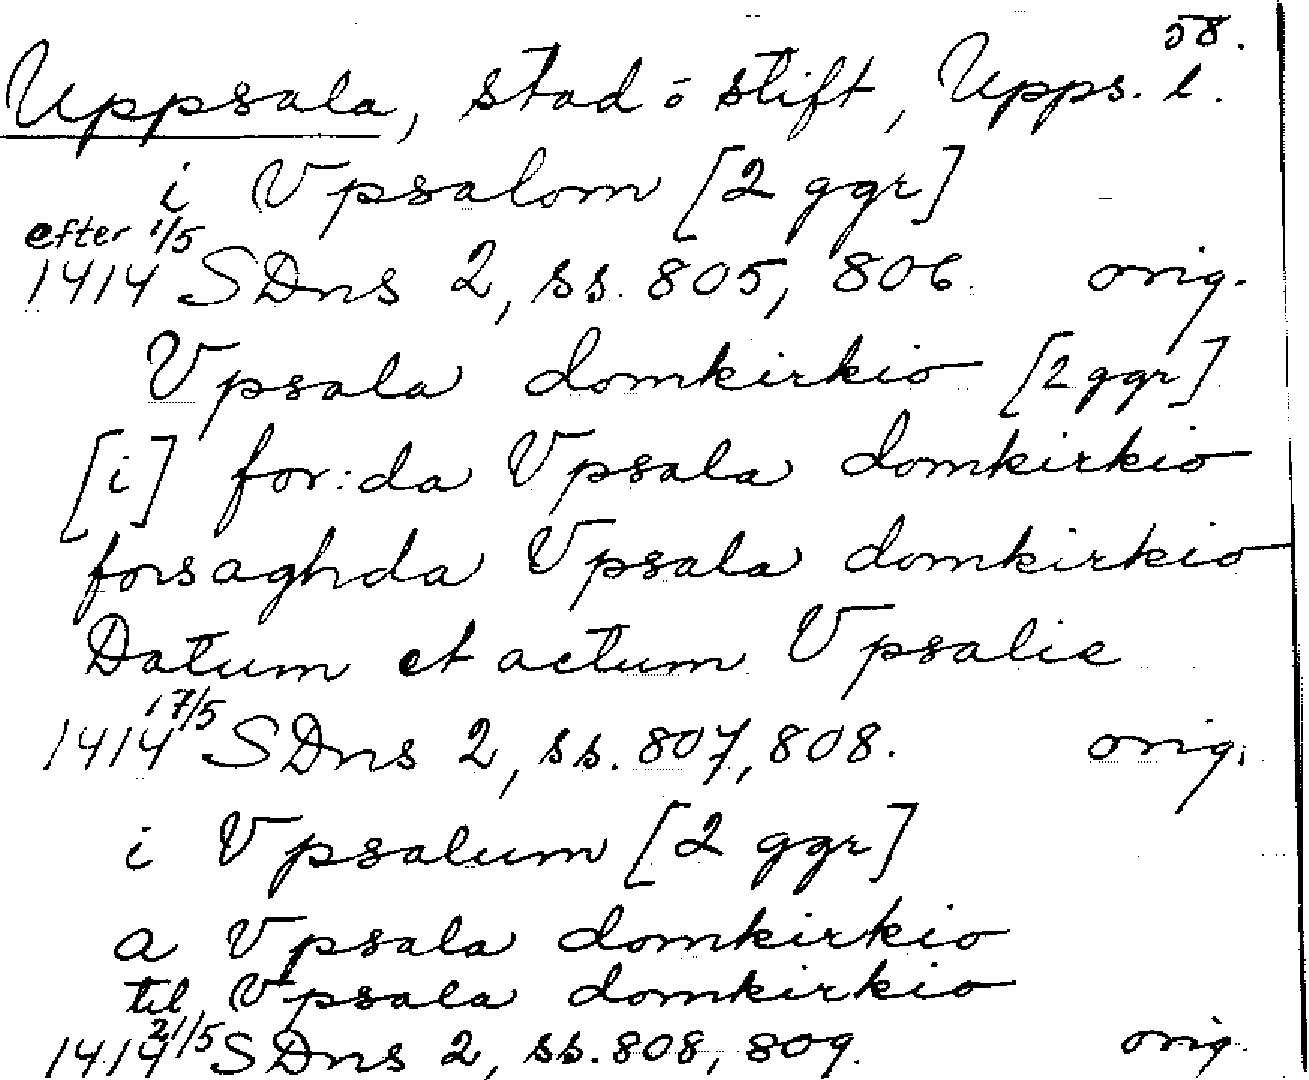 58.
Uppsala, stad o stift, Upps. l.
i Vpsalom [2 ggr]
efter 1/5
1414 SDns 2, ss. 805, 806. orig.
Vpsala domkirkio [2 ggr]
[i] for:da Vpsala domkirkio
forsaghda Vpsala domkirkio
Datum et actum Vpsalie
17/5
1414 SDns 2, ss. 807, 808. orig.
i Vpsalum [2 ggr]
a Vpsala domkirkio
til Vpsala domkirkio
21/5
1414 SDns 2, ss. 808, 809. orig.